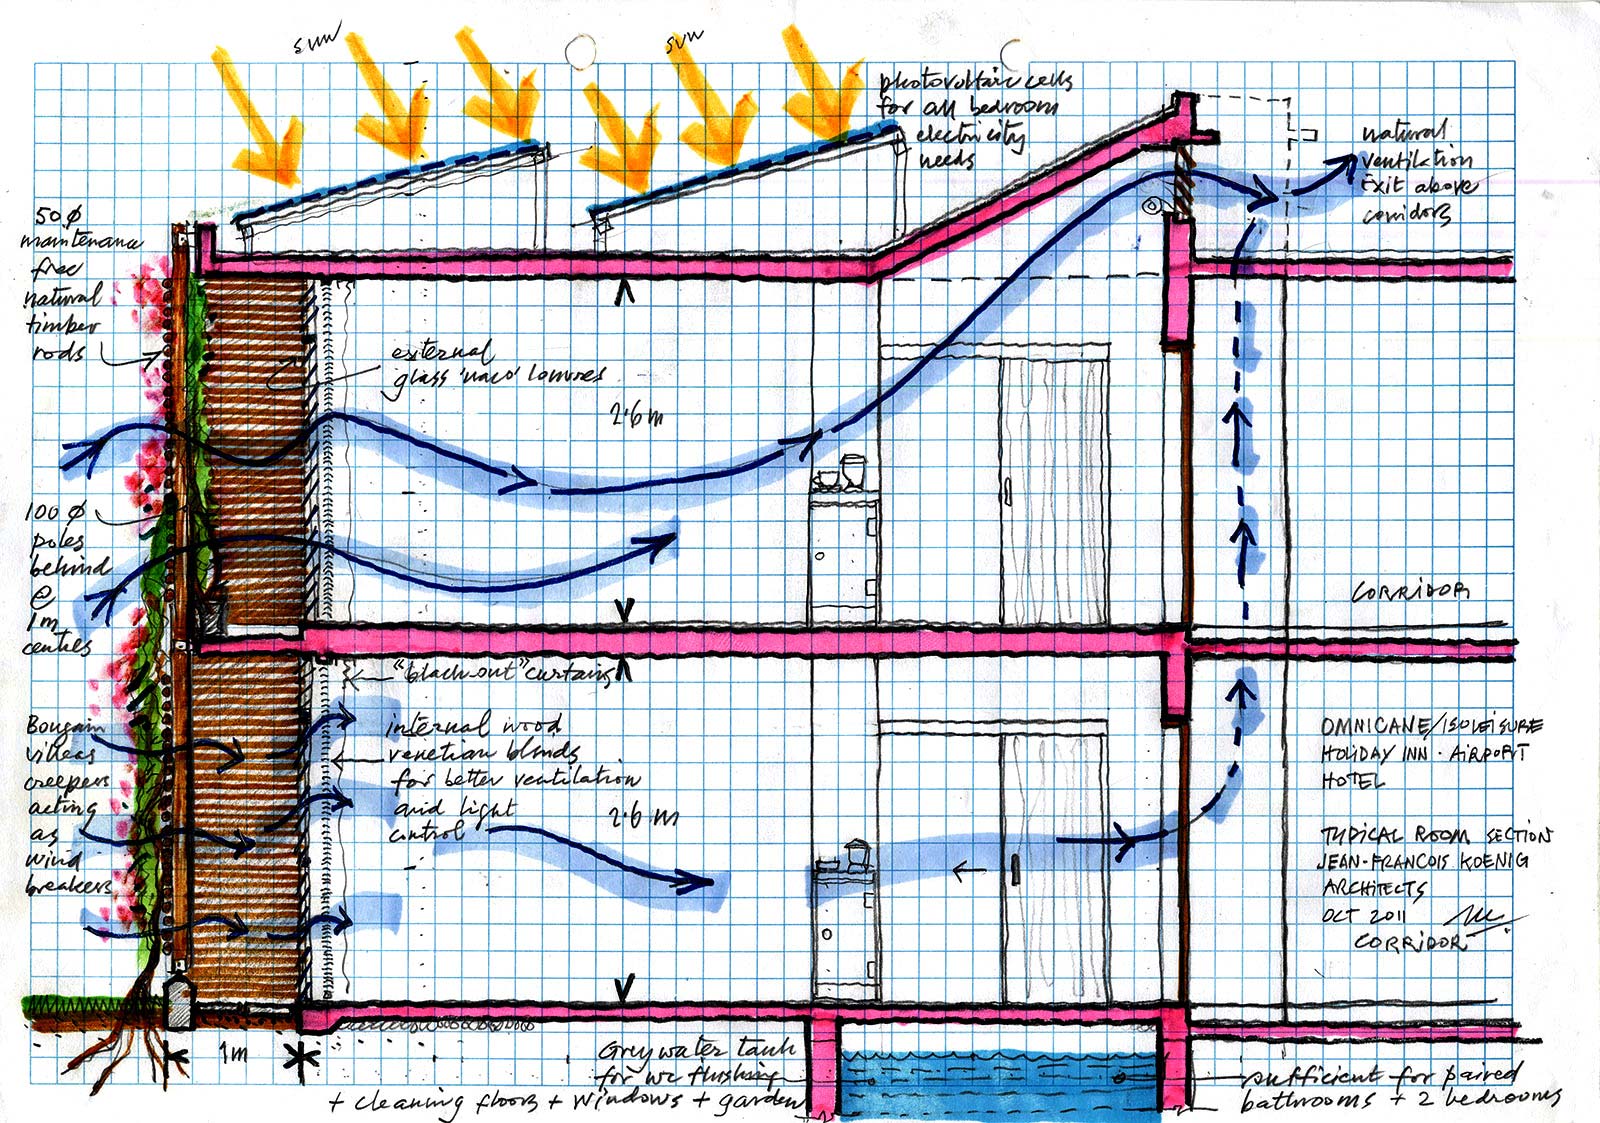 sun
sun
photovoltaic cells
for all bedroom
electricity
needs
natural
ventilation
Exit above
corridors
50ϕ
maintenance
free
natural
timber
rods
external
glass 'naco' louvres
2.6m
100ϕ
poles
behind
@
1m
centres
CORRIDOR
"black-out" curtains
Bougain
villeas
creepers
acting
as
wind
breakers
internal wood
venetian blinds
for better ventilation
and light
control
2.6m
OMNICANE/ISOLEISURE
HOLIDAY INN · AIRPORT
HOTEL
TYPICAL ROOM SECTION
JEAN-FRANCOIS KOENIG
ARCHITECTS
OCT 2011
CORRIDOR
1m
Greywater tank
for wc flushing
+ cleaning floors + windows + garden
sufficient for paired
bathrooms + 2 bedrooms